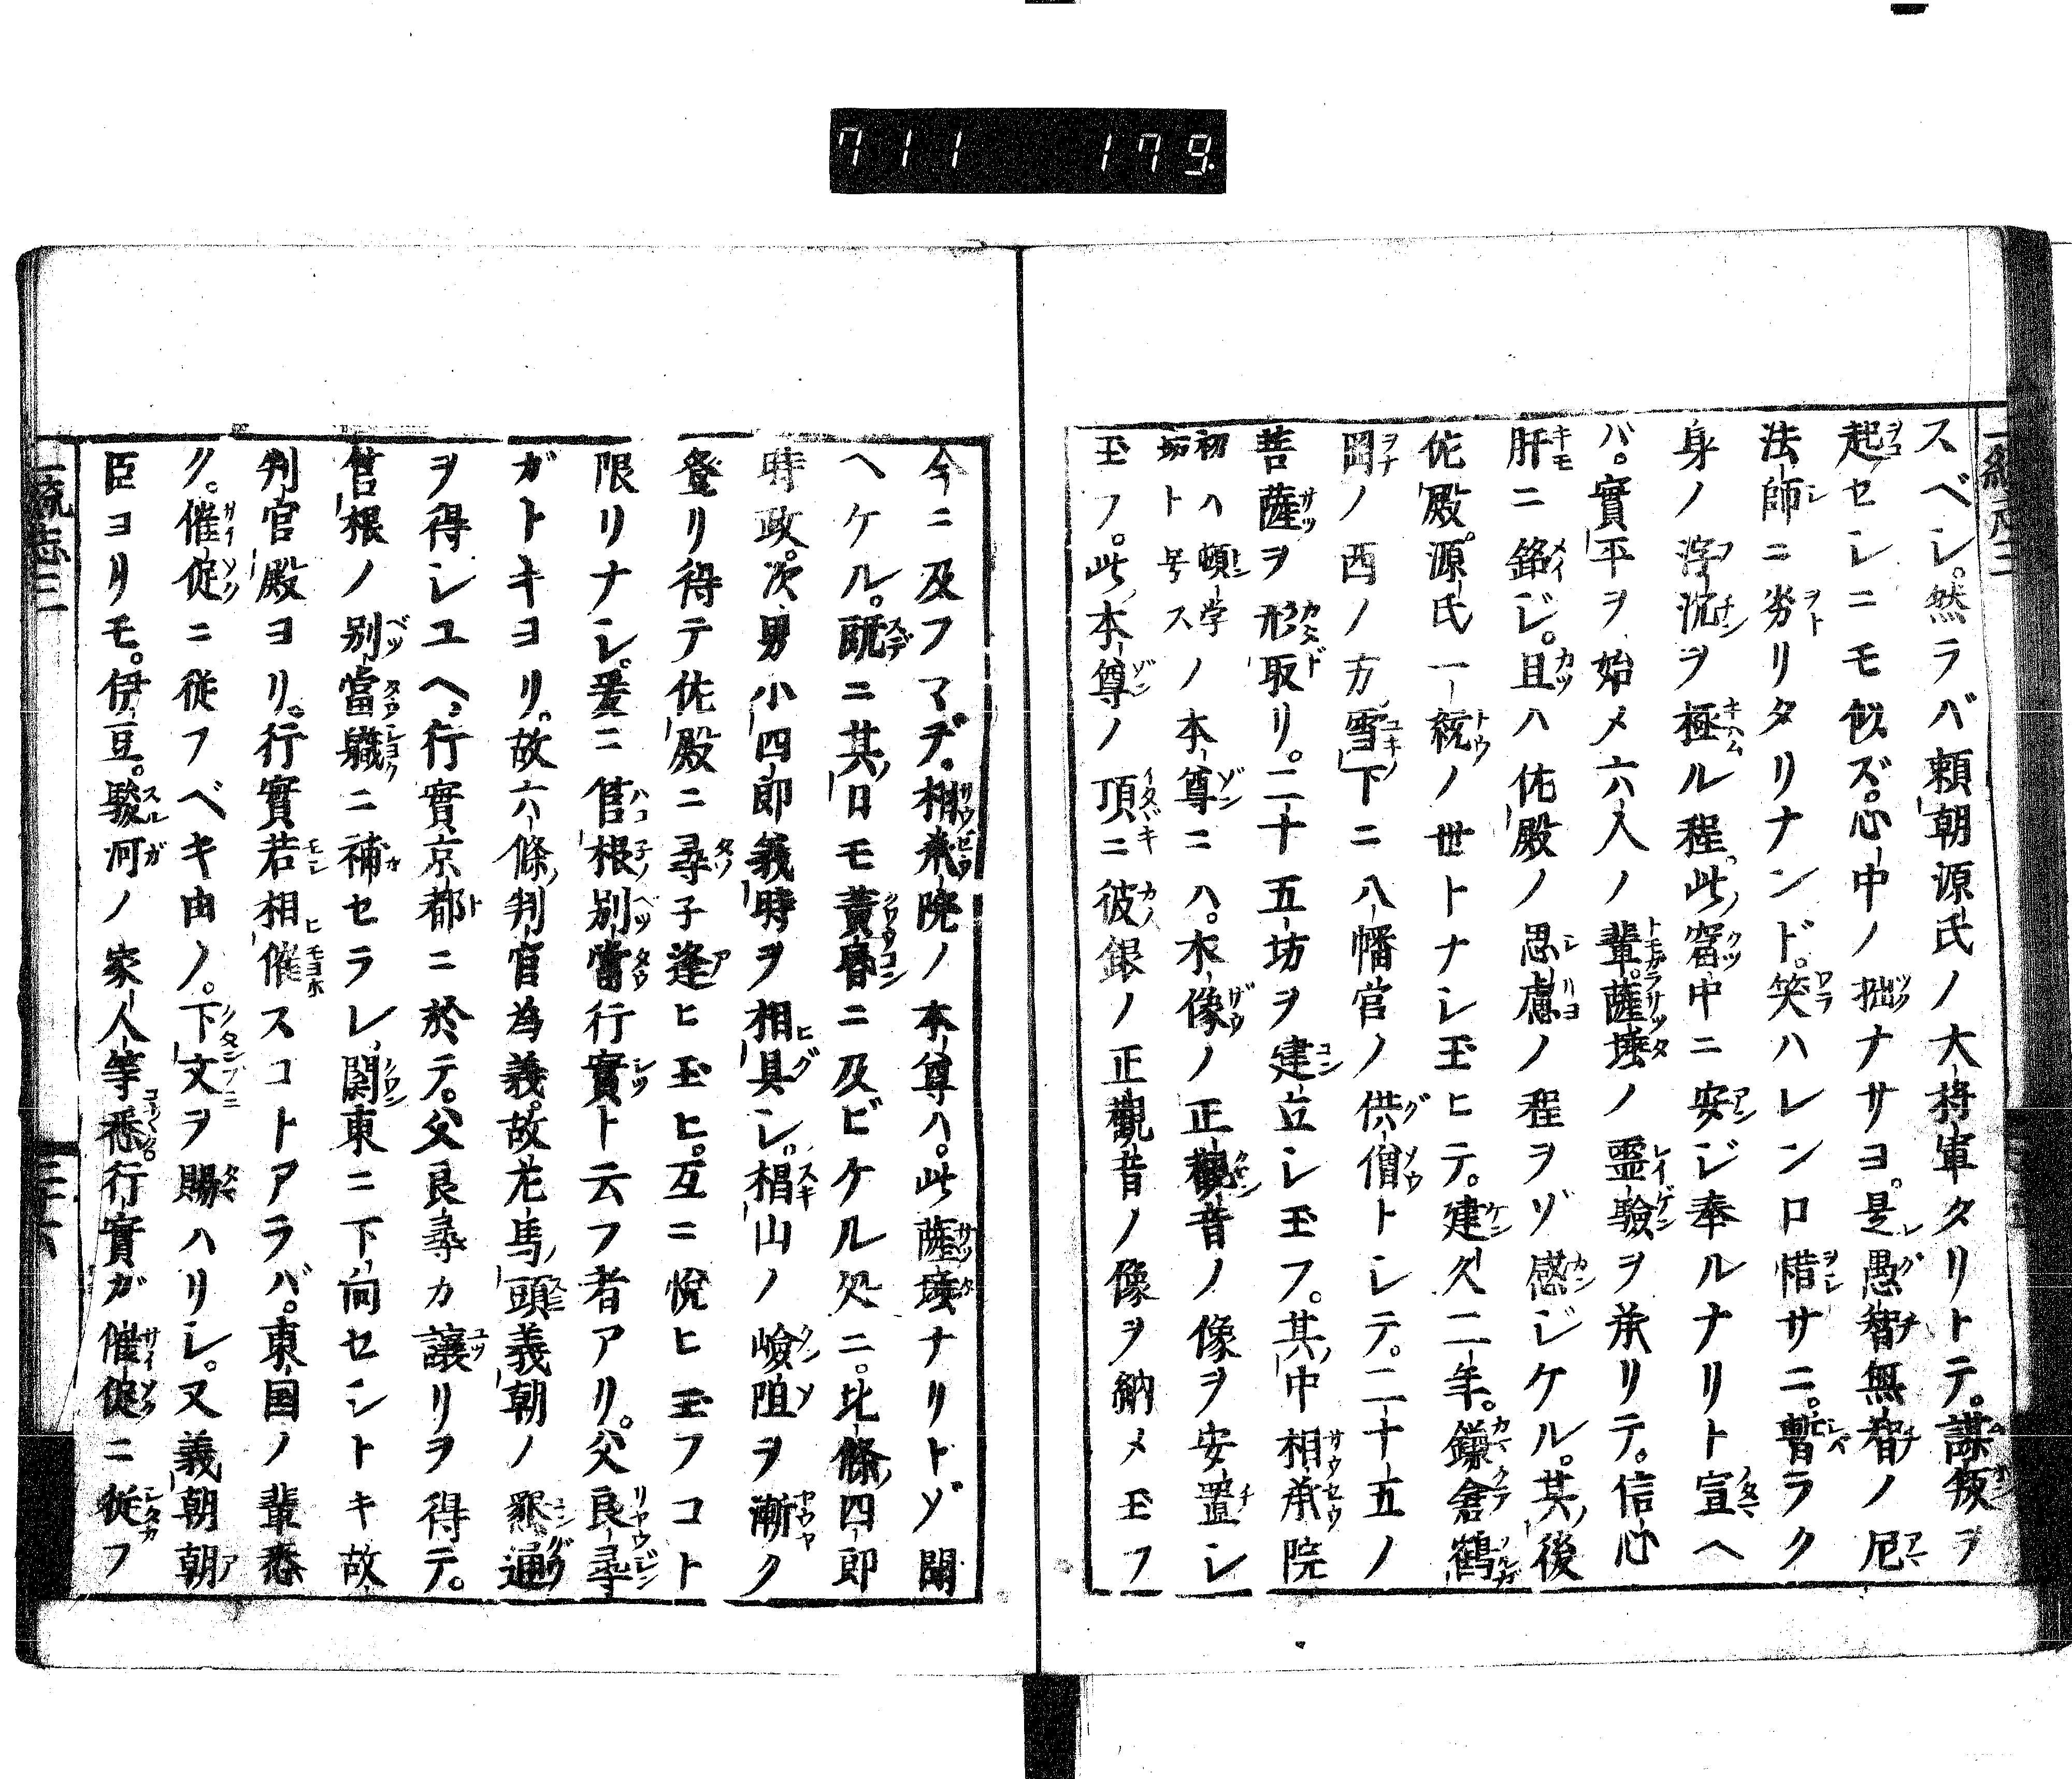 711 179
スベシ。然ラバ頼朝源氏ノ大将軍タリトテ。謀叛ヲ
起セシニモ似ズ。心中ノ拙ナサヨ。是愚智無智ノ尼
法師ニ劣リタリナンド。笑ハレン口惜サニ。暫ラク
身ノ浮沈ヲ極ル程。此窟中ニ安ジ奉ルナリト宣ヘ
バ。實平ヲ始メ六人ノ輩。薩埵ノ霊驗ヲ承リテ。信心
肝ニ銘ジ。且ハ佐殿ノ思慮ノ程ヲゾ感ジケル。其後
佐殿。源氏一統ノ世トナシ玉ヒテ。建久二年。鎌倉鶴
岡ノ西ノ方雪下ニ八幡宮ノ供僧トシテ。二十五ノ
菩薩ヲ形取リ。二十五坊ヲ建立シ玉フ。其中相承院
初ハ頓学坊ト号スノ本尊ニハ。木像ノ正觀音ノ像ヲ安置シ
玉フ。此本尊ノ頂ニ彼銀ノ正觀音ノ像ヲ納メ玉フ
今ニ及フマデ。相承院ノ本尊ハ。此薩埵ナリトゾ聞
ヘケル。既ニ其日モ黄昏ニ及ビケル処ニ。北條四郎
時政。次男小四郎義時ヲ相具シ。椙山ノ嶮阻ヲ漸ク
登リ得テ佐殿ニ尋子逢ヒ玉ヒ。互ニ悦ヒ玉フコト
限リナシ。爰ニ筥根別當行實ト云フ者アリ。父良尋
ガトキヨリ。故六條判官為義。故左馬頭義朝ノ懇通
ヲ得シユヘ。行實京都ニ於テ。父良尋カ譲リヲ得テ。
筥根ノ別當職ニ補セラレ。関東ニ下向セシトキ故
判官殿ヨリ。行實若相催スコトアラバ。東国ノ輩悉
ク。催促ニ従フベキ由ノ。下文ヲ賜ハリシ。又義朝朝
臣ヨリモ。伊豆。駿河ノ家人等悉ク。行實ガ催促ニ從フ